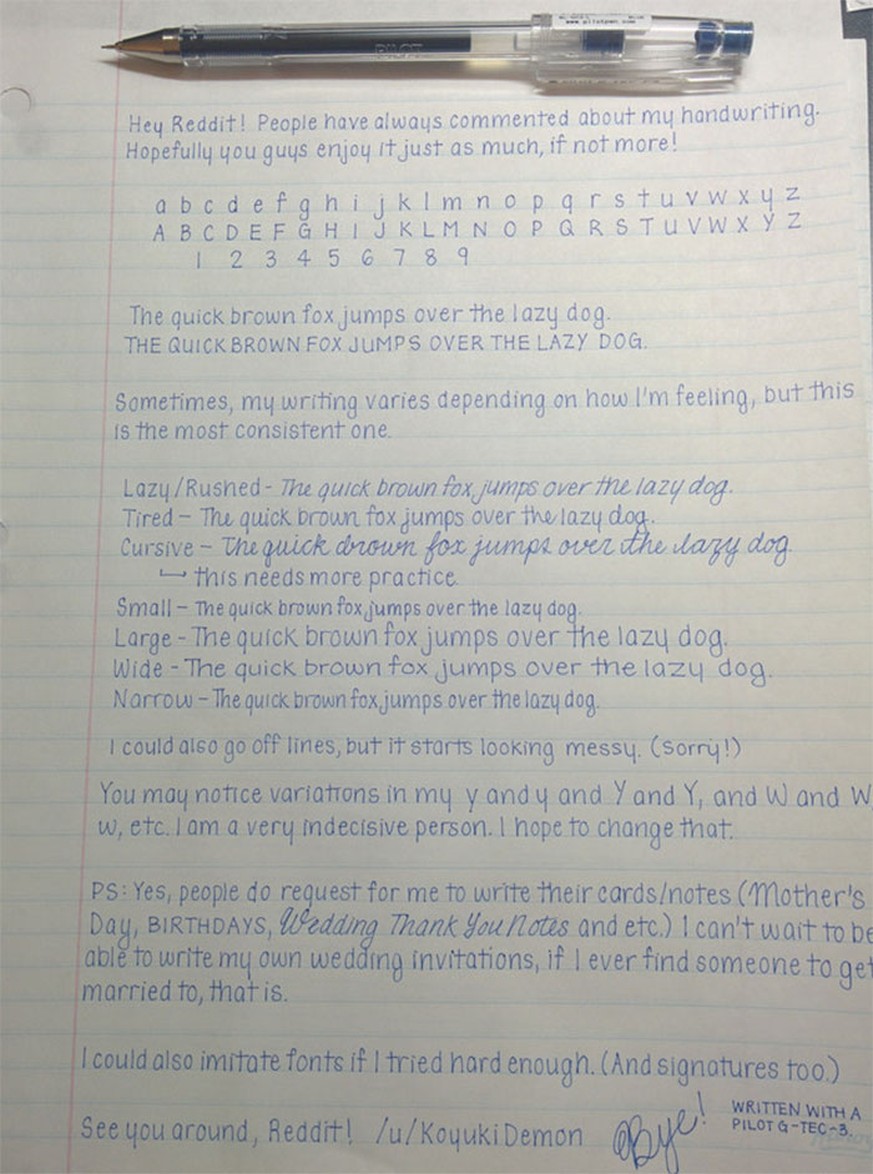 www.pilotpen.com
PILOT
Hey Reddit! People have always commented about my handwriting.
Hopefully you guys enjoy it just as much, if not more!
a b c d e f g h i j k l m n o p q r s t u v w x y z
A B C D E F G H I J K L M N O P Q R S T U V W X Y Z
1 2 3 4 5 6 7 8 9
The quick brown fox jumps over the lazy dog.
THE QUICK BROWN FOX JUMPS OVER THE LAZY DOG.
Sometimes, my writing varies depending on how I'm feeling, but this
is the most consistent one.
Lazy/Rushed - The quick brown fox jumps over the lazy dog.
Tired - The quick brown fox jumps over the lazy dog.
Cursive - The quick brown fox jumps over the lazy dog.
this needs more practice.
Small - The quick brown fox jumps over the lazy dog.
Large - The quick brown fox jumps over the lazy dog.
Wide - The quick brown fox jumps over the lazy dog.
Narrow - The quick brown fox jumps over the lazy dog.
I could also go off lines, but it starts looking messy. (Sorry!)
You may notice variations in my y and y and Y and Y, and W and W
w, etc. I am a very indecisive person. I hope to change that.
PS: Yes, people do request for me to write their cards/notes (Mother's
Day, BIRTHDAYS, Wedding Thank You Notes and etc.) I can't wait to be
able to write my own wedding invitations, if I ever find someone to get
married to, that is.
I could also imitate fonts if I tried hard enough. (And signatures too.)
See you around, Reddit! /u/KoyukiDemon Bye!
WRITTEN WITH A
PILOT G-TEC-3.